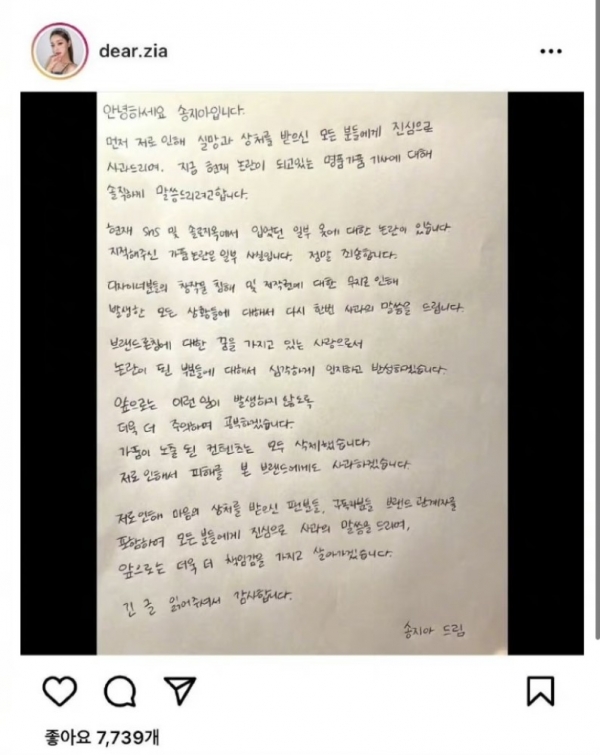 dear.zia
안녕하세요 송지아입니다.
먼저 저로 인해 실망과 상처를 받으신 모든 분들에게 진심으로
사과드리며. 지금 현재 논란이 되고있는 명품가품 기사에 대해
솔직하게 말씀드리려고합니다.
현재 SNS 및 솔로지옥에서 입었던 일부 옷에 대한 논란이 있습니다
지적해주신 가품논란은 일부 사실입니다. 정말 죄송합니다.
디자이너분들의 창작물 침해 및 저작권에 대한 무지로 인해
발생한 모든 상황들에 대해서 다시 한번 사과의 말씀을 드립니다.
브랜드론칭에 대한 꿈을 가지고 있는 사람으로서
논란이 된 부분들에 대해서 심각하게 인지하고 반성하겠습니다.
앞으로는 이런 일이 발생하지 않도록
더욱 더 주의하며 공부하겠습니다.
가품이 노출 된 컨텐츠는 모두 삭제했습니다.
저로 인해서 피해를 본 브랜드에게도 사과하겠습니다.
저로인해 마음의 상처를 받으신 팬분들, 구독자분들 브랜드 관계자를
포함하여 모든분들에게 진심으로 사과의 말씀을 드리며,
앞으로는 더욱 더 책임감을 가지고 살아가겠습니다.
긴 글 읽어주셔서 감사합니다.
송지아 드림
좋아요 7,739개